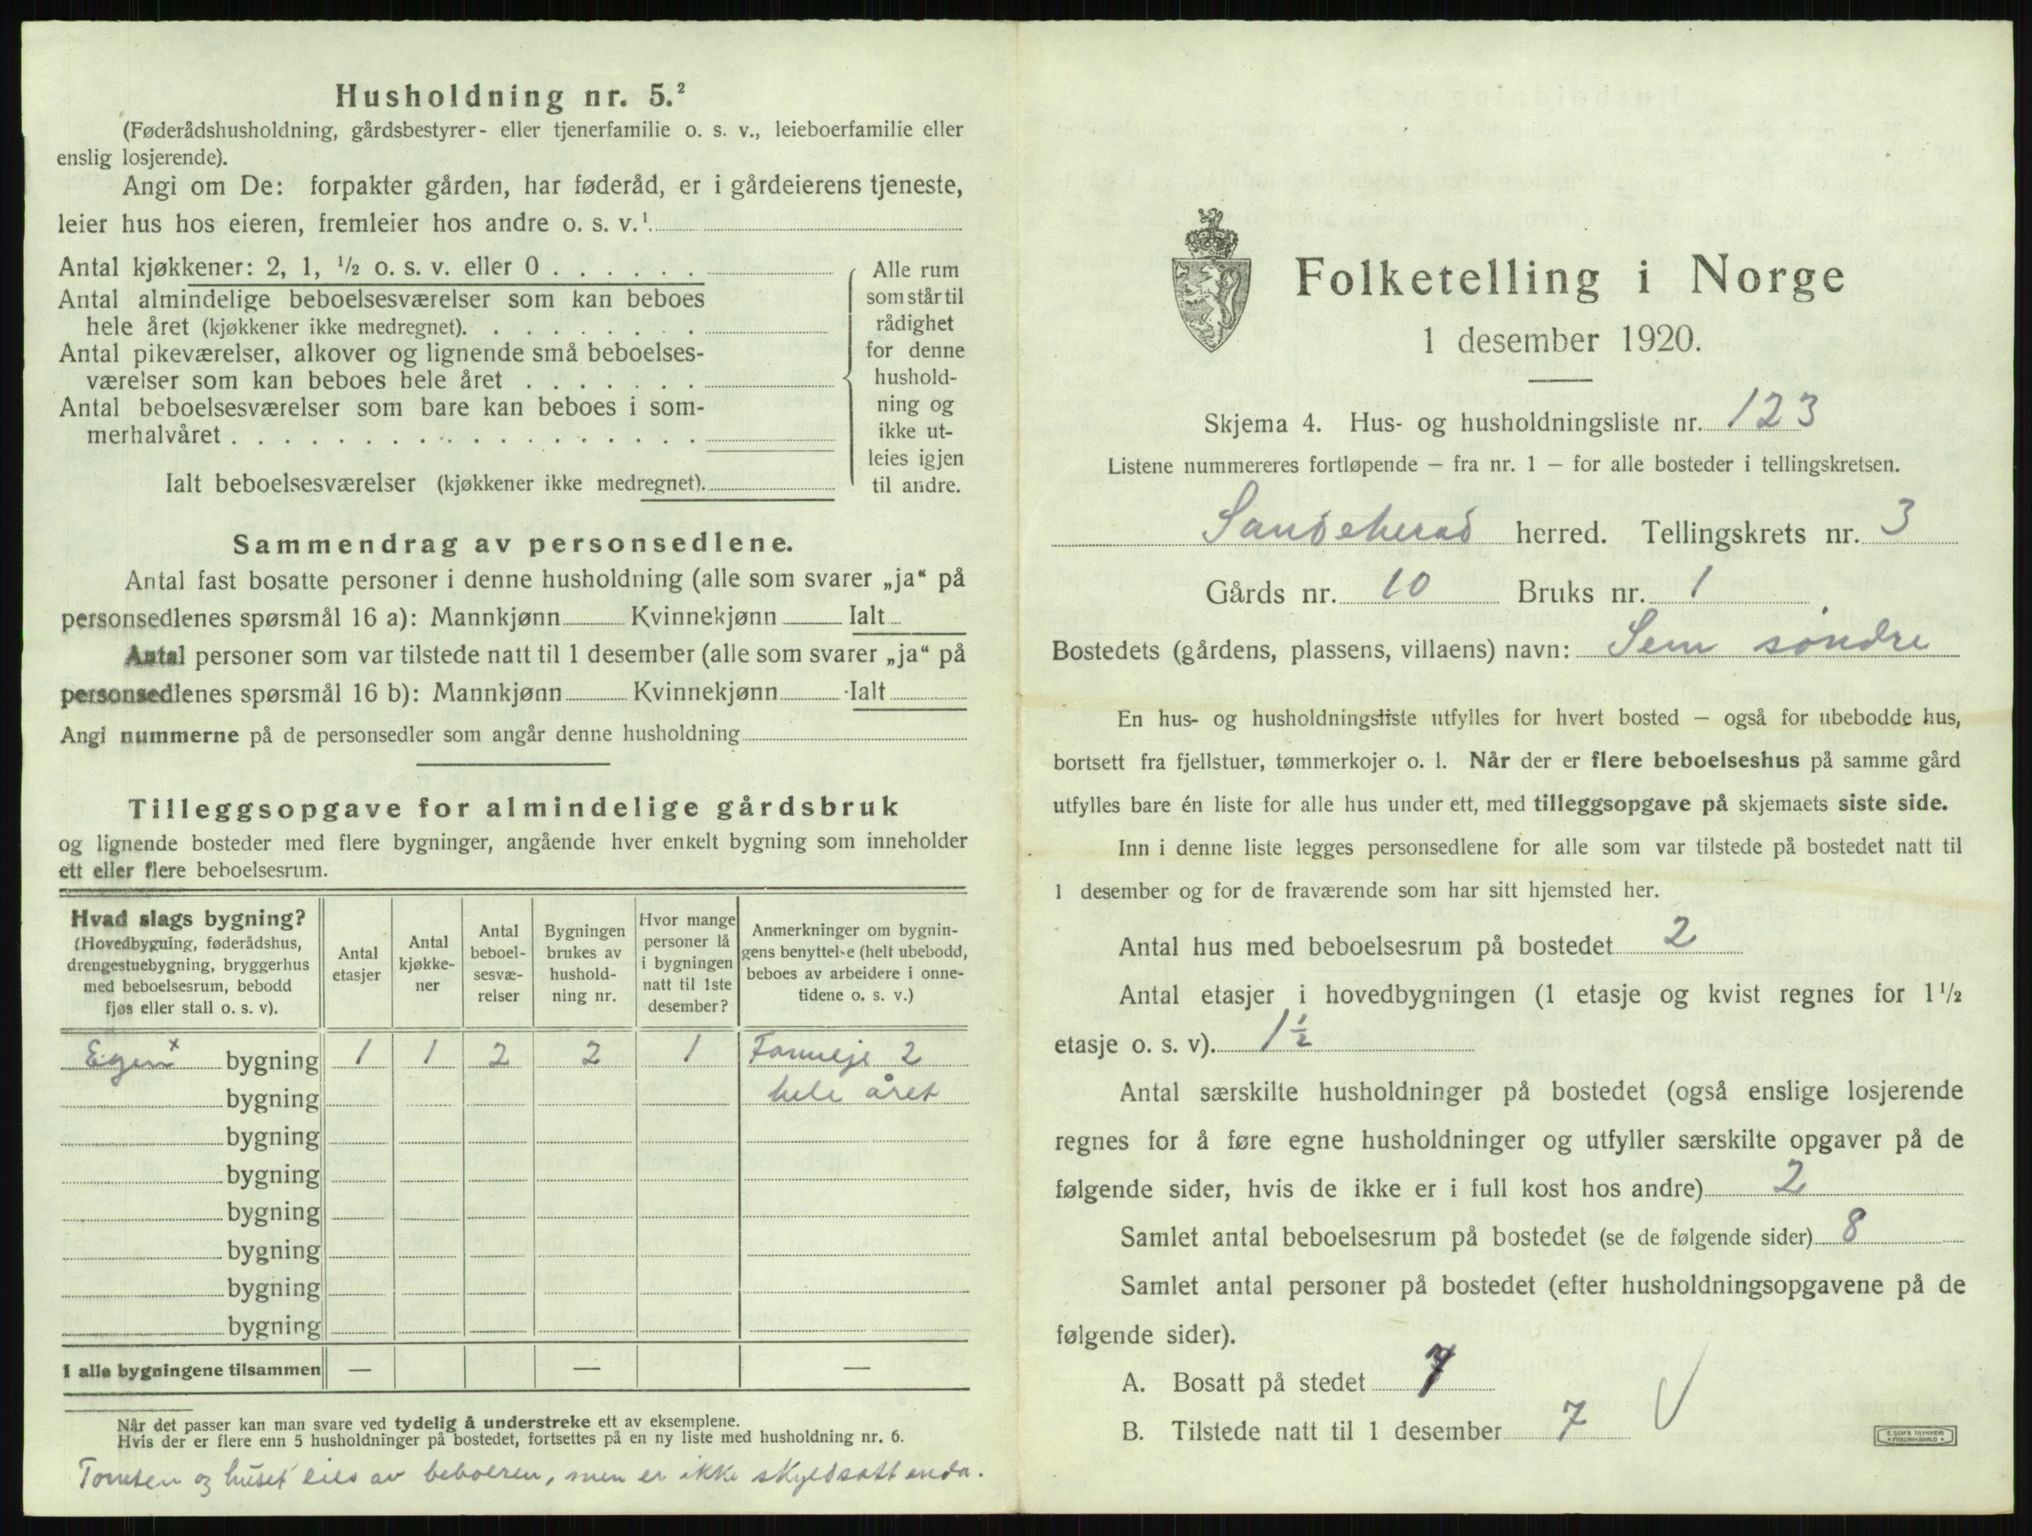 Husholdning nr. 5.²
(Føderådshusholdning, gårdsbestyrer- eller tjenerfamilie o. s. v., leieboerfamilie eller
enslig losjerende).
Angi om De: forpakter gården, har føderåd, er i gårdeierens tjeneste,
leier hus hos eieren, fremleier hos andre o. s. v.¹
Antal kjøkkener: 2, 1, ¹/₂ o. s. v. eller 0
Antal almindelige beboelsesværelser som kan beboes
hele året (kjøkkener ikke medregnet).
Antal pikeværelser, alkover og lignende små beboelses-
værelser som kan beboes hele året
Antal beboelsesværelser som bare kan beboes i som-
merhalvåret
Ialt beboelsesværelser (kjøkkener ikke medregnet).
Alle rum
som står til
rådighet
for denne
hushold-
ning og
ikke ut-
leies igjen
til andre.
Sammendrag av personsedlene.
Antal fast bosatte personer i denne husholdning (alle som svarer „ja“ på
personsedlenes spørsmål 16 a): Mannkjønn Kvinnekjønn Ialt
Antal personer som var tilstede natt til 1 desember (alle som svarer „ja“ på
personsedlenes spørsmål 16 b): Mannkjønn Kvinnekjønn Ialt
Angi nummerne på de personsedler som angår denne husholdning
Tilleggsopgave for almindelige gårdsbruk
og lignende bosteder med flere bygninger, angående hver enkelt bygning som inneholder
ett eller flere beboelsesrum.
Hvad slags bygning?
(Hovedbygning, føderådshus,
drengestuebygning, bryggerhus
med beboelsesrum, bebodd
fjøs eller stall o. s. v).
Antal
etasjer
Antal
kjøkke-
ner
Antal
beboel-
sesvæ-
relser
Bygningen
brukes av
hushold-
ning nr.
Hvor mange
personer lå
i bygningen
natt til 1ste
desember?
Anmerkninger om bygnin-
gens benyttelse (helt ubebodd,
beboes av arbeidere i onne-
tidene o. s. v.)
Egen x bygning 1 1 2 2 1 2
bygning hele året
bygning
bygning
bygning
bygning
bygning
bygning
I alle bygningene tilsammen — — —
Når det passer kan man svare ved tydelig å understreke ett av eksemplene.
Hvis der er flere enn 5 husholdninger på bostedet, fortsettes på en ny liste med husholdning nr. 6.
Tomten og huset eies av beboeren, men er ikke skyldsatt enda.
Folketelling i Norge
1 desember 1920.
Skjema 4. Hus- og husholdningsliste nr. 123
Listene nummereres fortløpende — fra nr. 1 — for alle bosteder i tellingskretsen.
Sandeherad herred. Tellingskrets nr. 3
Gårds nr. 10 Bruks nr. 1
Bostedets (gårdens, plassens, villaens) navn: Sem søndre
En hus- og husholdningsliste utfylles for hvert bosted — også for ubebodde hus,
bortsett fra fjellstuer, tømmerkojer o. l. Når der er flere beboelseshus på samme gård
utfylles bare én liste for alle hus under ett, med tilleggsopgave på skjemaets siste side.
Inn i denne liste legges personsedlene for alle som var tilstede på bostedet natt til
1 desember og for de fraværende som har sitt hjemsted her.
Antal hus med beboelsesrum på bostedet 2
Antal etasjer i hovedbygningen (1 etasje og kvist regnes for 1 ¹/₂
etasje o. s. v). 1 ½
Antal særskilte husholdninger på bostedet (også enslige losjerende
regnes for å føre egne husholdninger og utfyller særskilte opgaver på de
følgende sider, hvis de ikke er i full kost hos andre) 2
Samlet antal beboelsesrum på bostedet (se de følgende sider) 8
Samlet antal personer på bostedet (efter husholdningsopgavene på de
følgende sider).
A. Bosatt på stedet 7
B. Tilstede natt til 1 desember 7